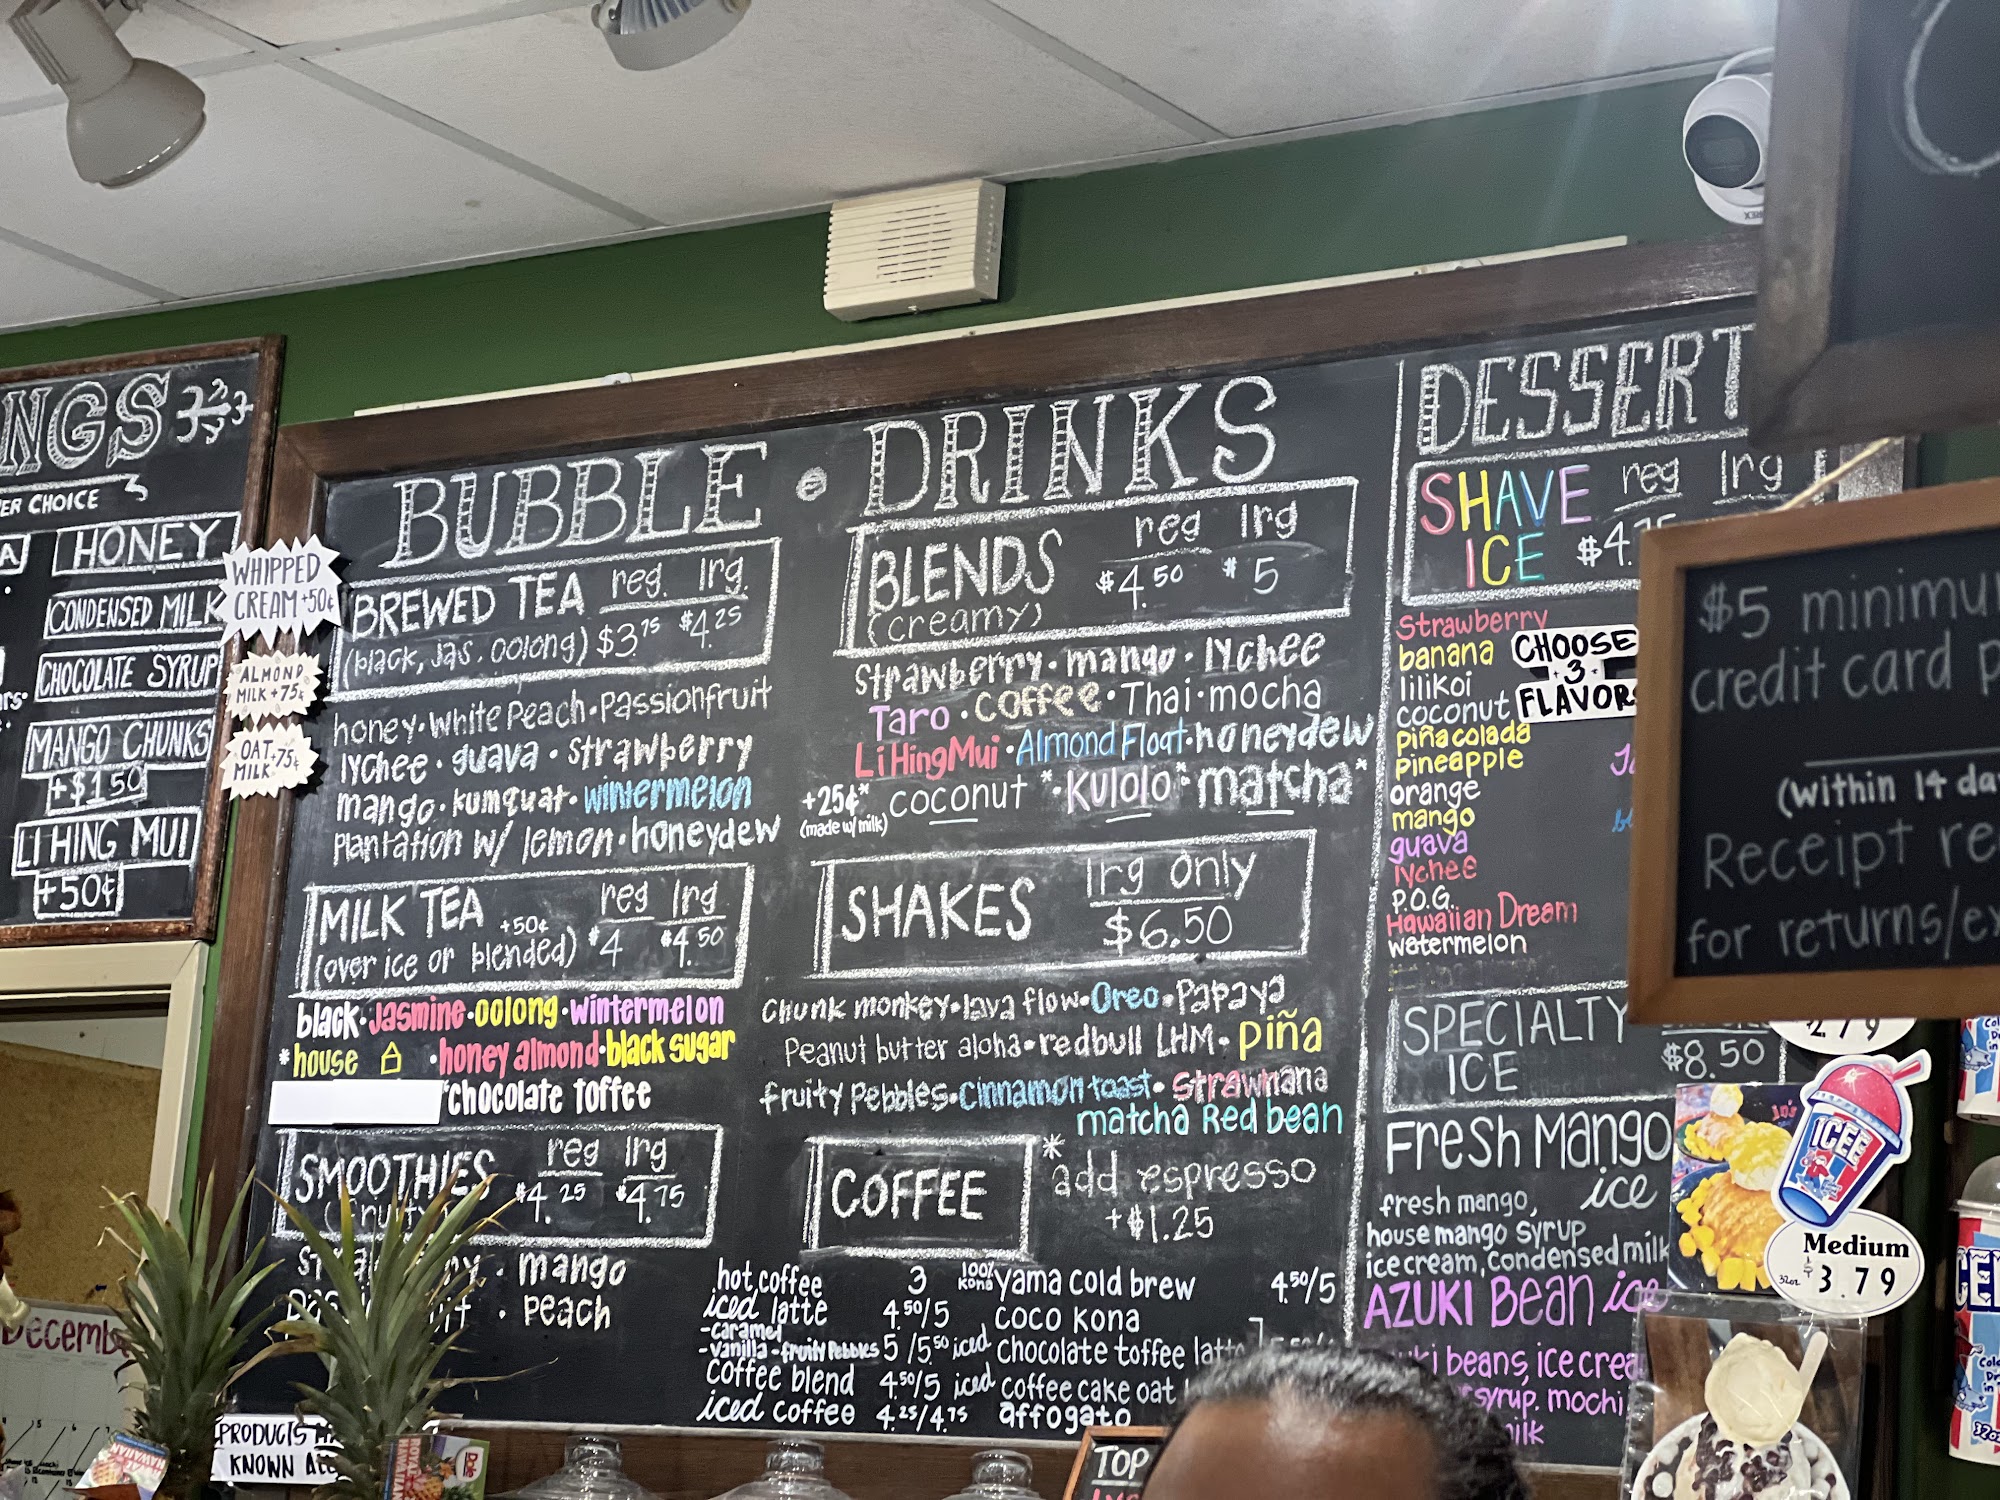 NGS
ER CHOICE
HONEY
CONDENSED MILK
CHOCOLATE SYRUP
MANGO CHUNKS
+$1.50
LI HING MUI
+50¢
WHIPPED
CREAM +50¢
ALMOND
MILK +75¢
OAT +75¢
MILK
BUBBLE • DRINKS
BREWED TEA reg. lrg.
(black, jas. oolong) $3.75 $4.25
honey • white Peach • Passionfruit
lychee • guava • strawberry
mango • kumquat • wintermelon
Plantation w/ lemon • honeydew
MILK TEA +50¢ reg lrg
(over ice or blended) $4 $4.50
black • Jasmine • oolong • wintermelon
*house • honey almond • black sugar
*chocolate toffee
SMOOTHIES reg lrg
(fruity) $4.25 $4.75
mango
Peach
BLENDS reg lrg
(creamy) $4.50 $5
strawberry • mango • lychee
Taro • coffee • Thai • mocha
Li Hing Mui • Almond Float • honeydew
+25¢* coconut * • Kulolo * matcha*
(made w/ milk)
SHAKES lrg only
$6.50
chunk monkey • lava flow • Oreo • Papaya
Peanut butter aloha • redbull LHM • piña
fruity Pebbles • cinnamon toast • strawnana
matcha Red bean
COFFEE
*add espresso
+$1.25
hot coffee 3
iced latte 4.50/5
-caramel
-vanilla -fruity Pebbles 5/5.50
coffee blend 4.50/5
iced coffee 4.25/4.75
100% Kona yama cold brew 4.50/5
coco kona
iced chocolate toffee latte
iced coffee cake oat
affogato
DESSERT
SHAVE ICE reg lrg
Strawberry
banana
lilikoi
coconut
piña colada
pineapple
orange
mango
guava
lychee
P.O.G.
Hawaiian Dream
watermelon
CHOOSE
3
FLAVORS
SPECIALTY
ICE $8.50
Fresh Mango
ice
fresh mango,
house mango syrup
ice cream, condensed milk
AZUKI Bean ice
beans, ice crea
syrup, mochi
milk
$5 minimu
credit card p
(within 14 da
Receipt re
for returns/ex
2 7 9
ICEE
Medium
32oz $3.79
Decemb
PRODUCTS
KNOWN
HAWAIIAN
Dole
TOP